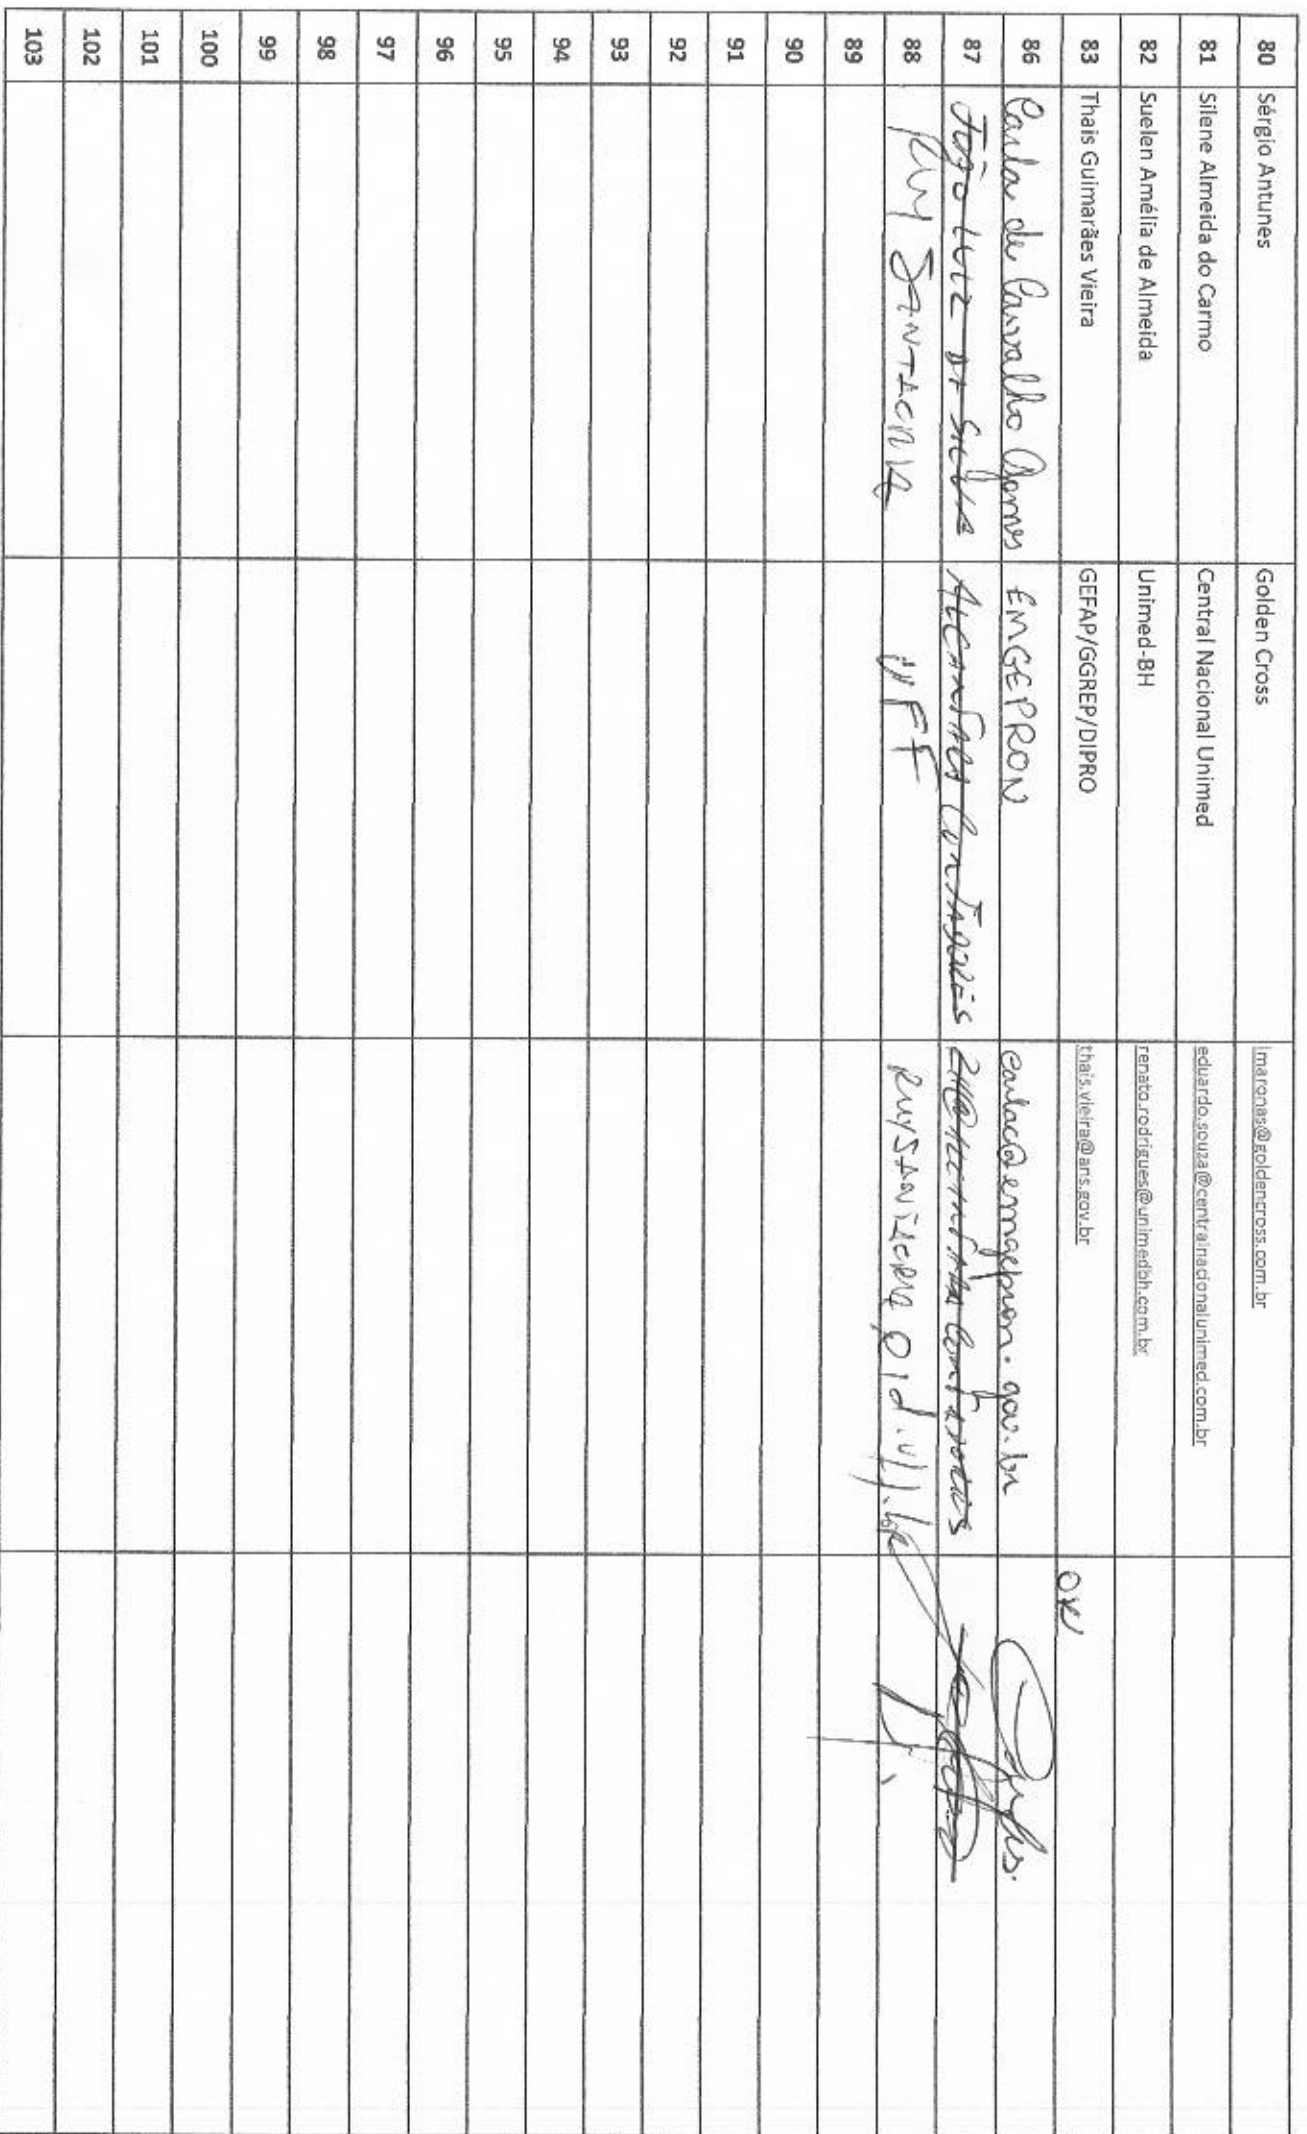 80 Sérgio Antunes Golden Cross lmaronas@goldencross.com.br
81 Silene Almeida do Carmo Central Nacional Unimed eduardo.souza@centralnacionalunimed.com.br
82 Suelen Amélia de Almeida Unimed-BH renato.rodrigues@unimedbh.com.br
83 Thais Guimarães Vieira GEFAP/GGREP/DIPRO thais.vieira@ans.gov.br OK
86 Carla de Carvalho Gomes EMGEPRON carlac@emgepron.gov.br
87 João Luiz da Silva
88 Ruy Santacruz UFF
89
90
91
92
93
94
95
96
97
98
99
100
101
102
103